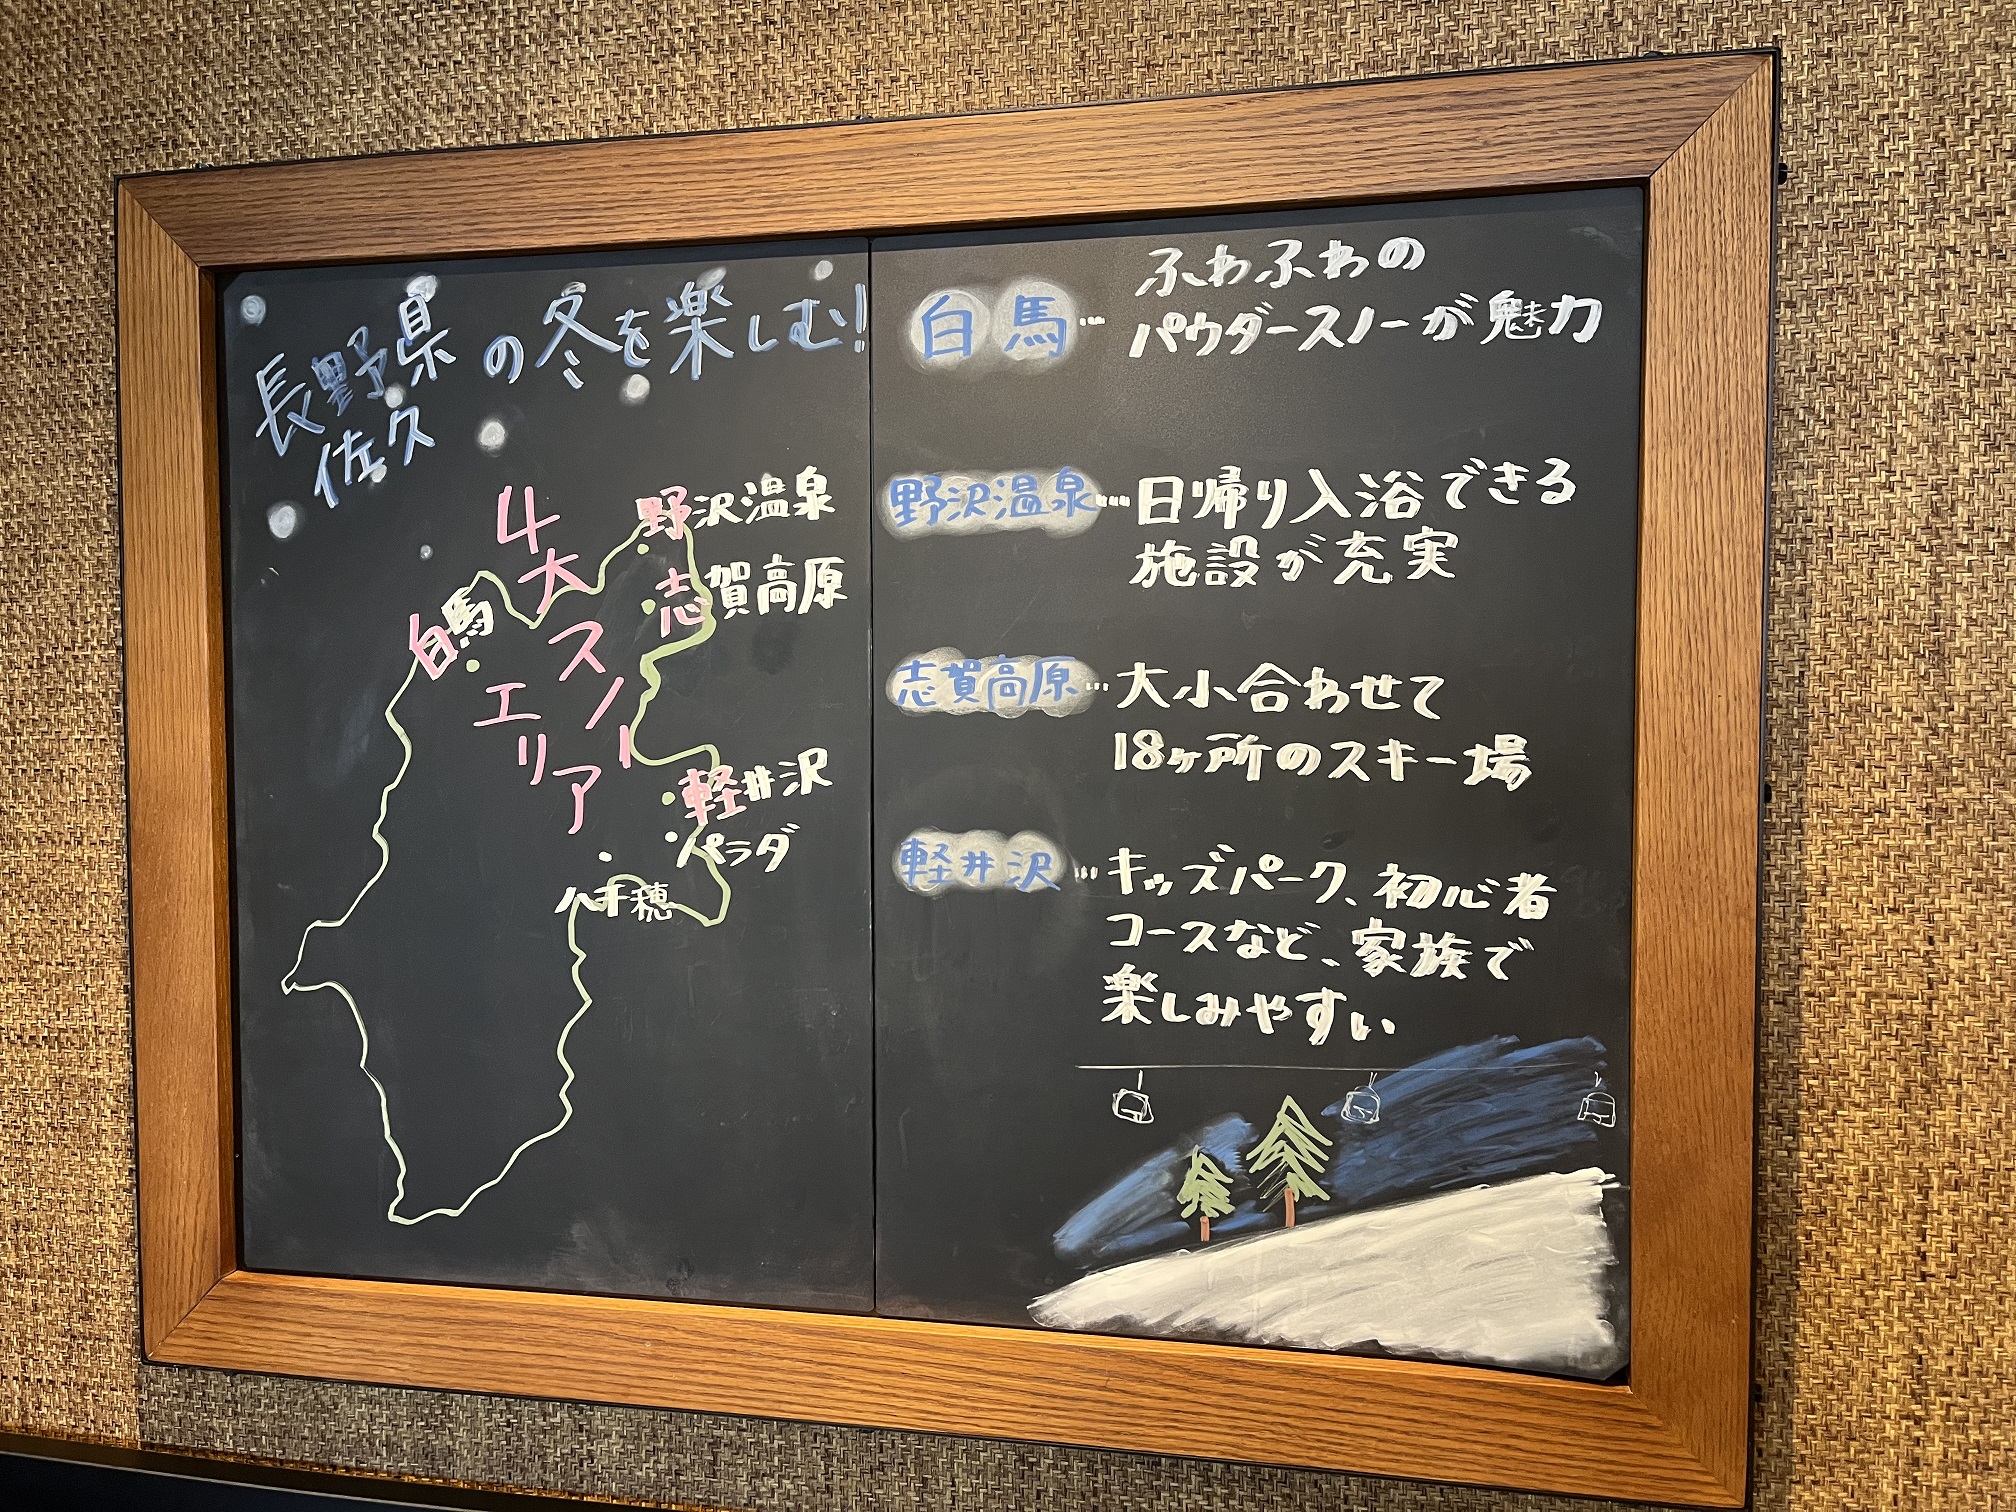 長野県の冬を楽しむ!
佐久
4大
スノー
エリア
野沢温泉
志賀高原
白馬
軽井沢
パラダ
八千穂
白馬… ふわふわの
パウダースノーが魅力
野沢温泉… 日帰り入浴できる
施設が充実
志賀高原… 大小合わせて
18ヶ所のスキー場
軽井沢… キッズパーク、初心者
コースなど、家族で
楽しみやすい